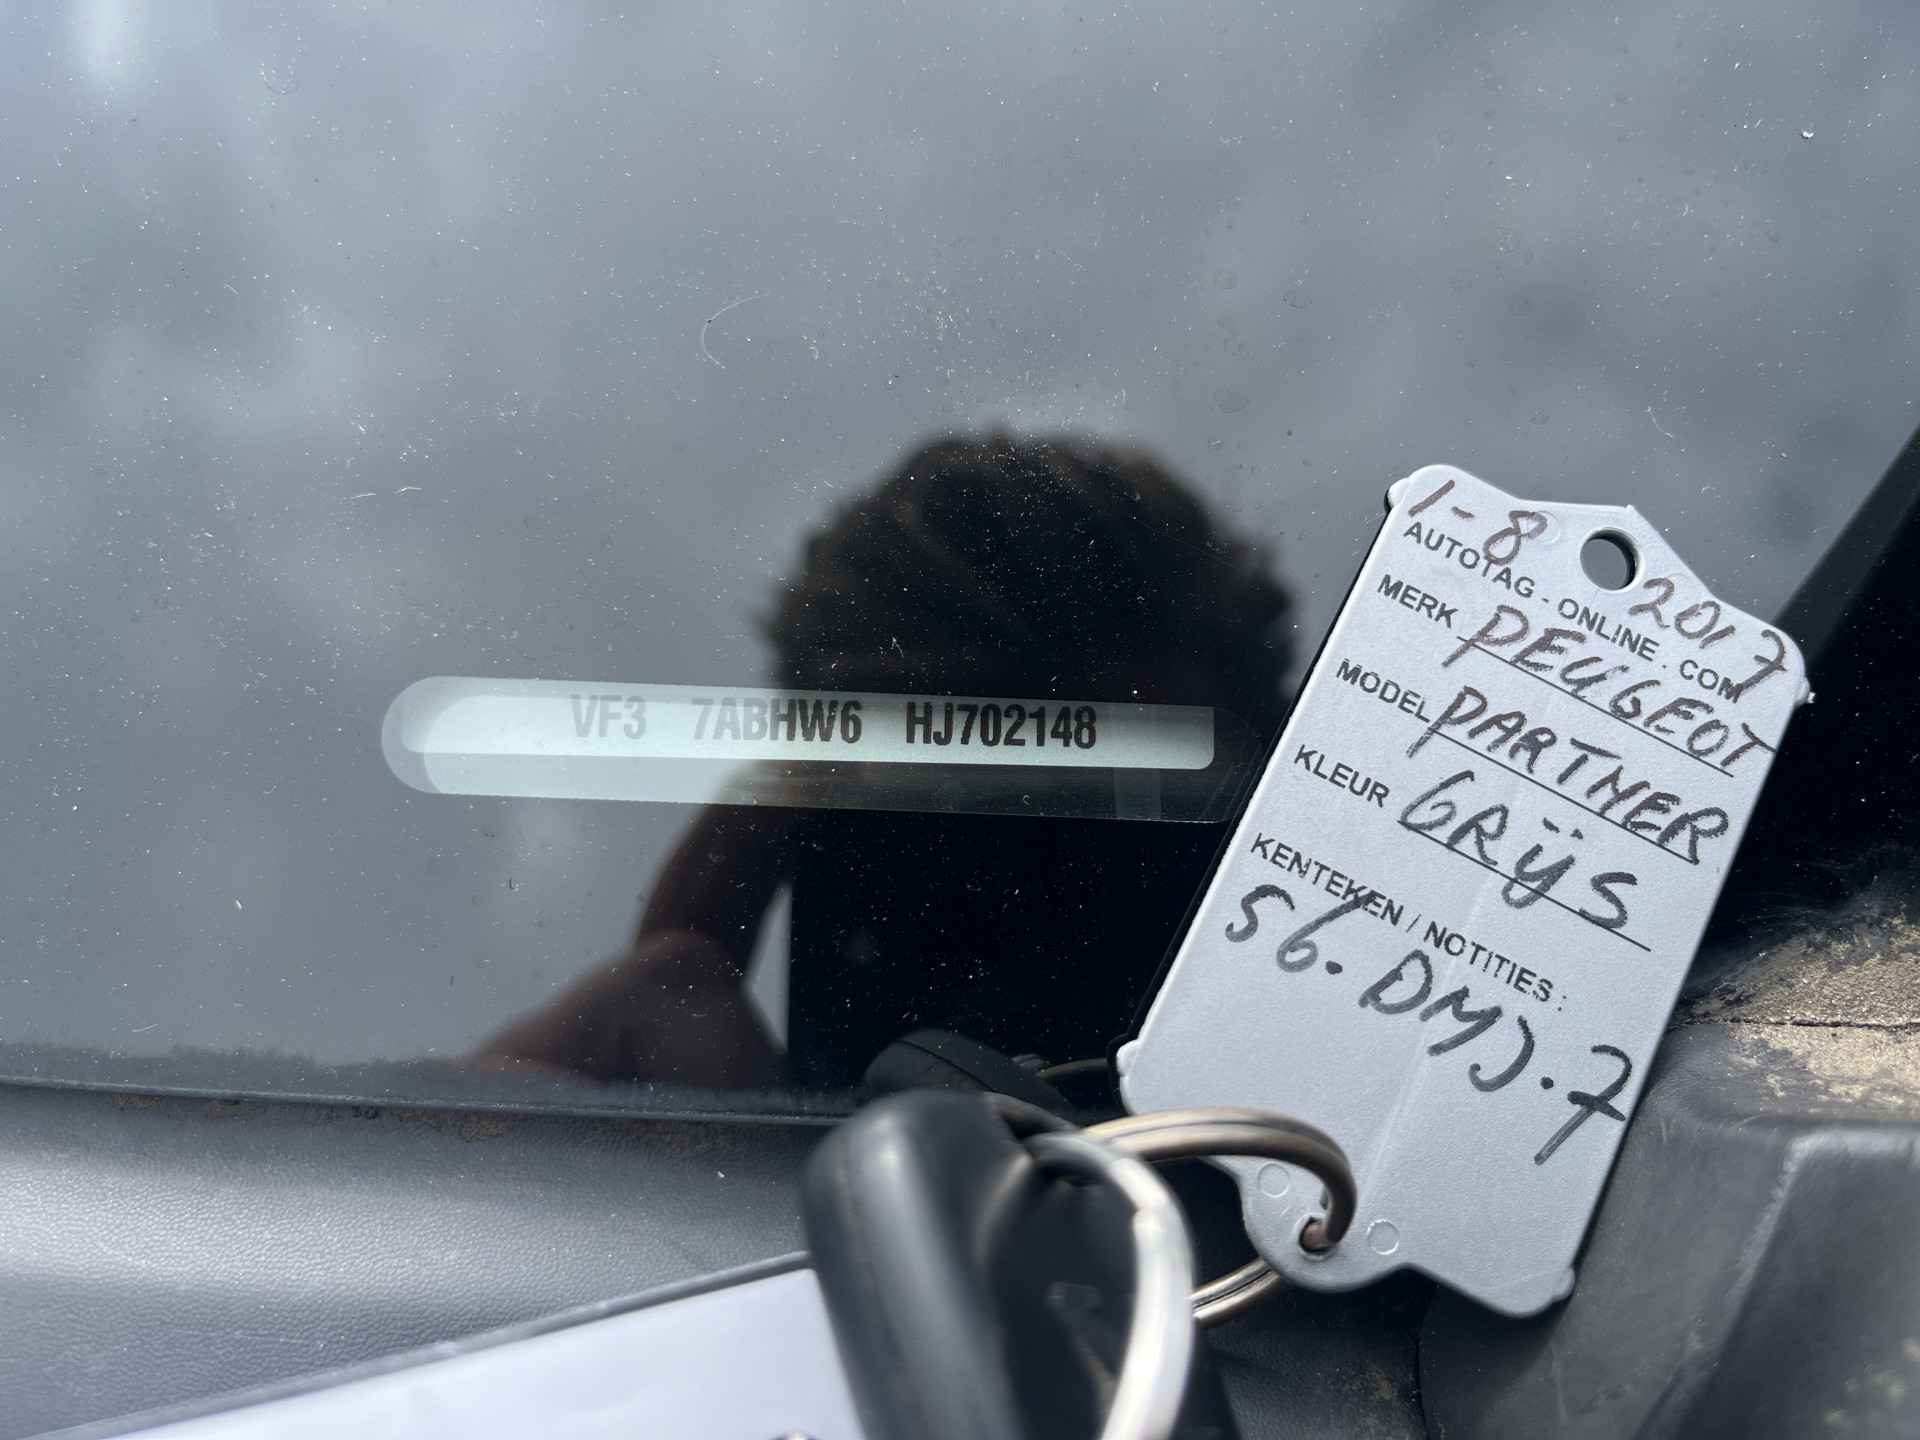 VF3 7ABHW6 HJ702148
1-8 2017
AUTOTAG-ONLINE.COM
MERK PEUGEOT
MODEL PARTNER
KLEUR GRÿS
KENTEKEN / NOTITIES :
56.DMJ.7